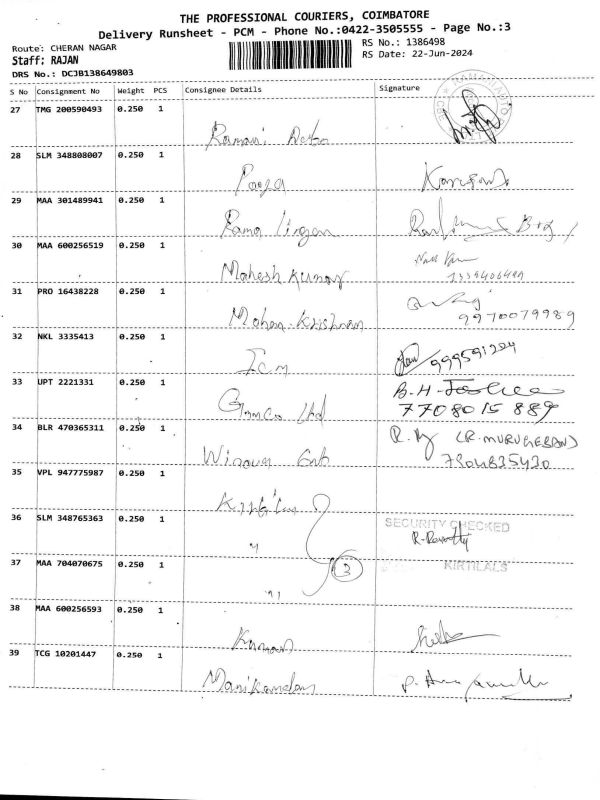 THE PROFESSIONAL COURIERS, COIMBATORE
Delivery Runsheet - PCM - Phone No.:0422-3505555 - Page No.:3
Route: CHERAN NAGAR
RS No.: 1386498
Staff: RAJAN
RS Date: 22-Jun-2024
DRS No.: DCJB138649803
S No Consignment No Weight PCS Consignee Details Signature
27 TMG 200590493 0.250 1
Ramani
28 SLM 348808007 0.250 1
Pooja
29 MAA 301489941 0.250 1
Rama Lingam
30 MAA 600256519 0.250 1
Mahesh Kumar
31 PRO 16438228 0.250 1
Mohan Krishnan 9970079989
32 NKL 3335413 0.250 1
33 UPT 2221331 0.250 1
Ltd 7708015889
34 BLR 470365311 0.250 1
35 VPL 947775987 0.250 1
36 SLM 348765363 0.250 1
SECURITY CHECKED
R. Revathy
37 MAA 704070675 0.250 1
3 KIRTILALS
38 MAA 600256593 0.250 1
Kumar
39 TCG 10201447 0.250 1
Manikandan